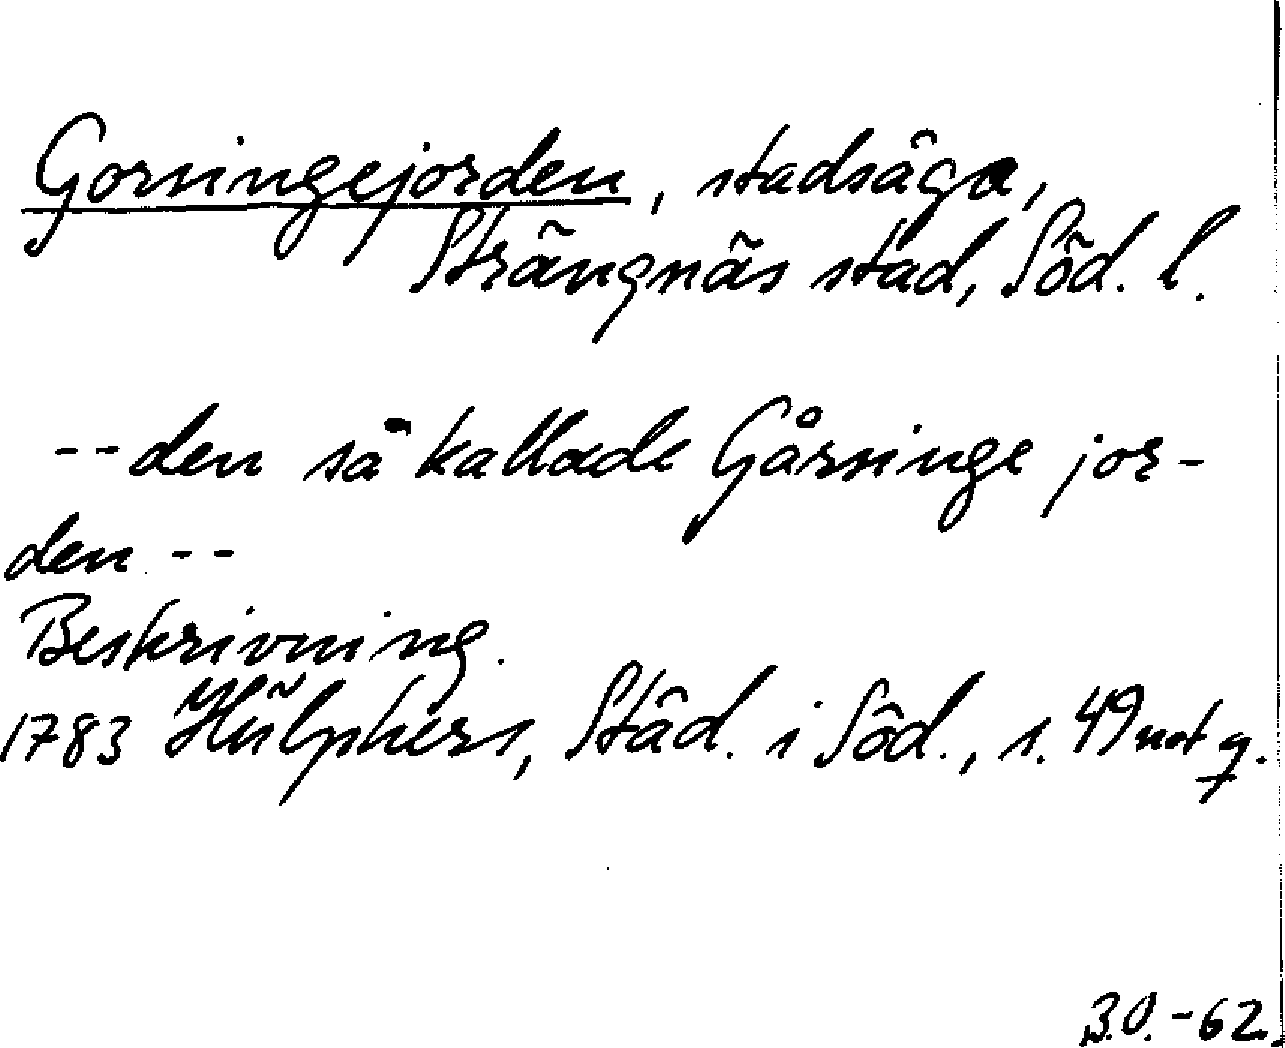 Gorsingejorden, stadsäga,
Strängnäs stad, Söd. l.
-- den så kallade Gårsinge jor-
den --
Beskrivning.
1783 Hülphers, Städ. i Söd., s. 49 not q.
B.O. -62.